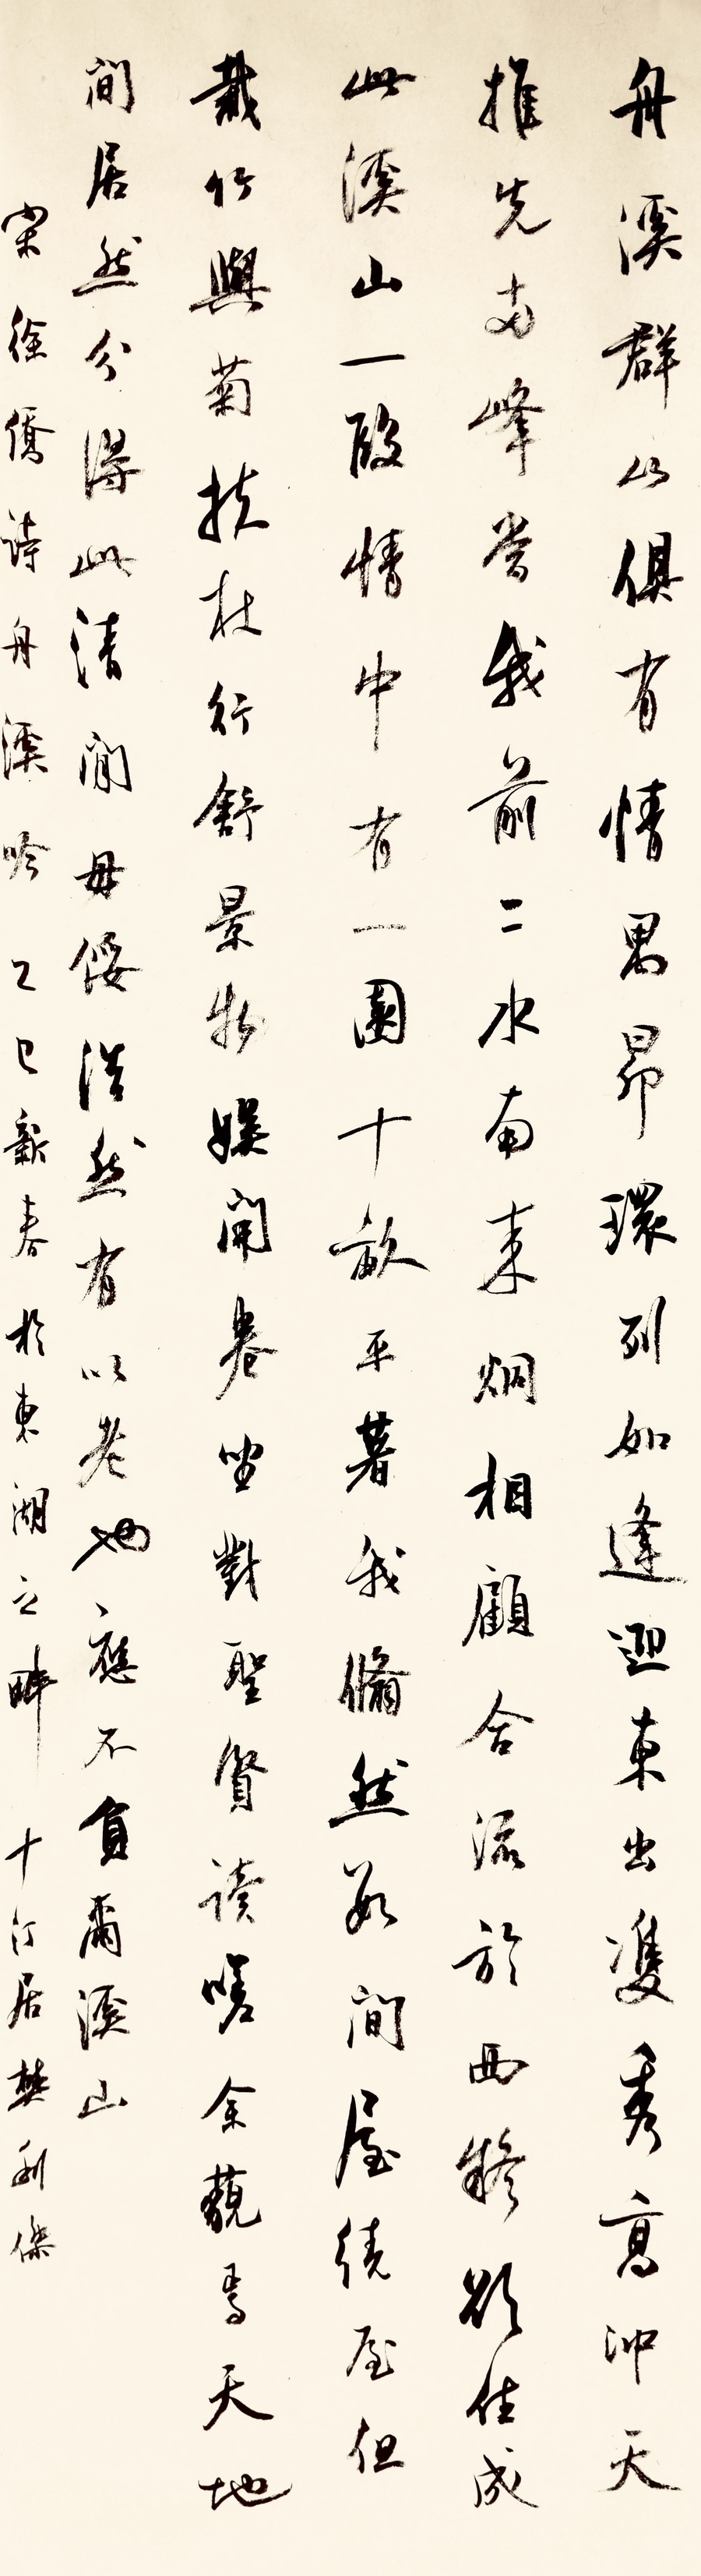 舟溪群山俱有情禺昂環列如逢迎東出雙秀高沖天
推先両峰當我前二水南来烱相顧合流於西疑欲住成
此溪山一段情中有一園十畝平著我翛然数间屋繞屋但
栽竹與菊扶杖行舒景物娱開卷坐對聖賢读嗟余藐焉天地
间居然分得此清閒毋倭浩然有以老也應不負爾溪山
宋徐僑诗舟溪吟 乙巳新春於東湖之畔 十汀居樊利傑